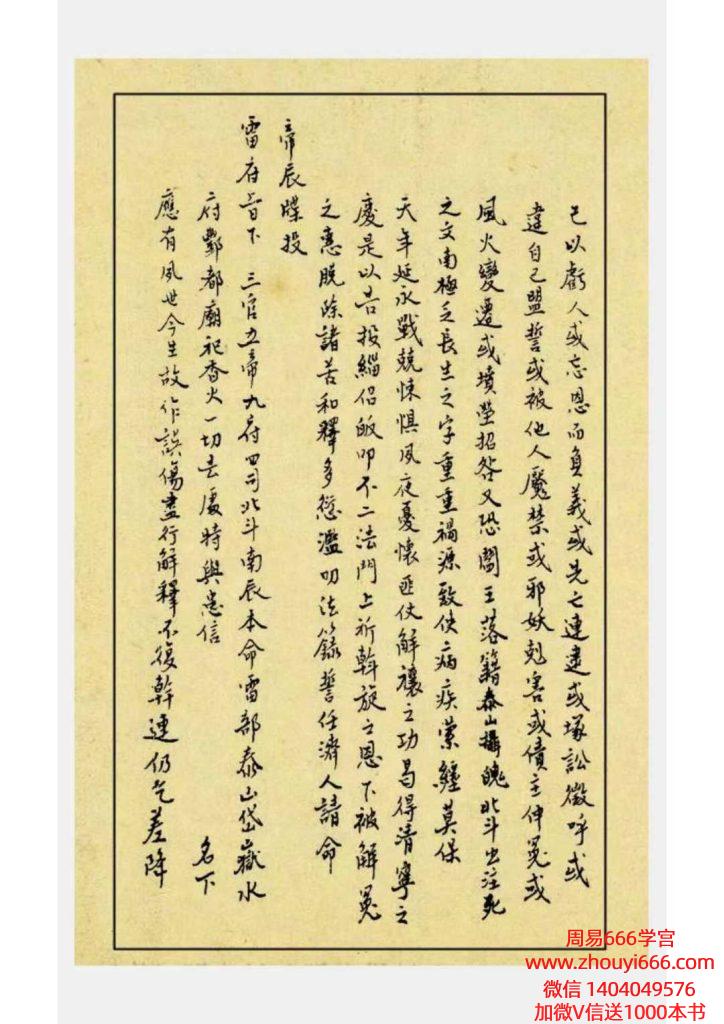 己以虧人或忘恩而負義或先亡連逮或塚訟徵呼或
違自己盟誓或被他人魘禁或邪妖剋害或債主伸冤或
風火變遷或墳塋招咎又恐閻王落籍泰山攝魄北斗出注死
之文南極乏長生之字重重禍源致使病疾縈纏莫保
天年延永戰兢悚惧夙夜憂懷匪仗解禳之功曷得清寧之
慶是以告投緇侶皈叩不二法門上祈斡旋之恩下被解冤
之惠脫除諸苦和釋多愆濫叨法籙誓任濟人請命
帝辰牒投
雷府旨下 三官五帝九府四司北斗南辰本命雷部泰山岱嶽水
府酆都廟祀香火一切去處時與患信 名下
應有夙世今生故作誤傷盡行解釋不復斡連仍乞差降
周易666学宫
www.zhouyi666.com
微信 1404049576
加微V信送1000本书